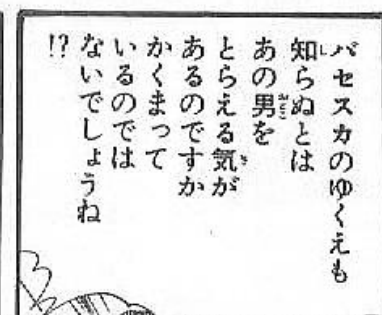 バセスカのゆくえも
知らぬとは
あの男を
とらえる気が
あるのですか
かくまって
いるのでは
ないでしょうね
!?